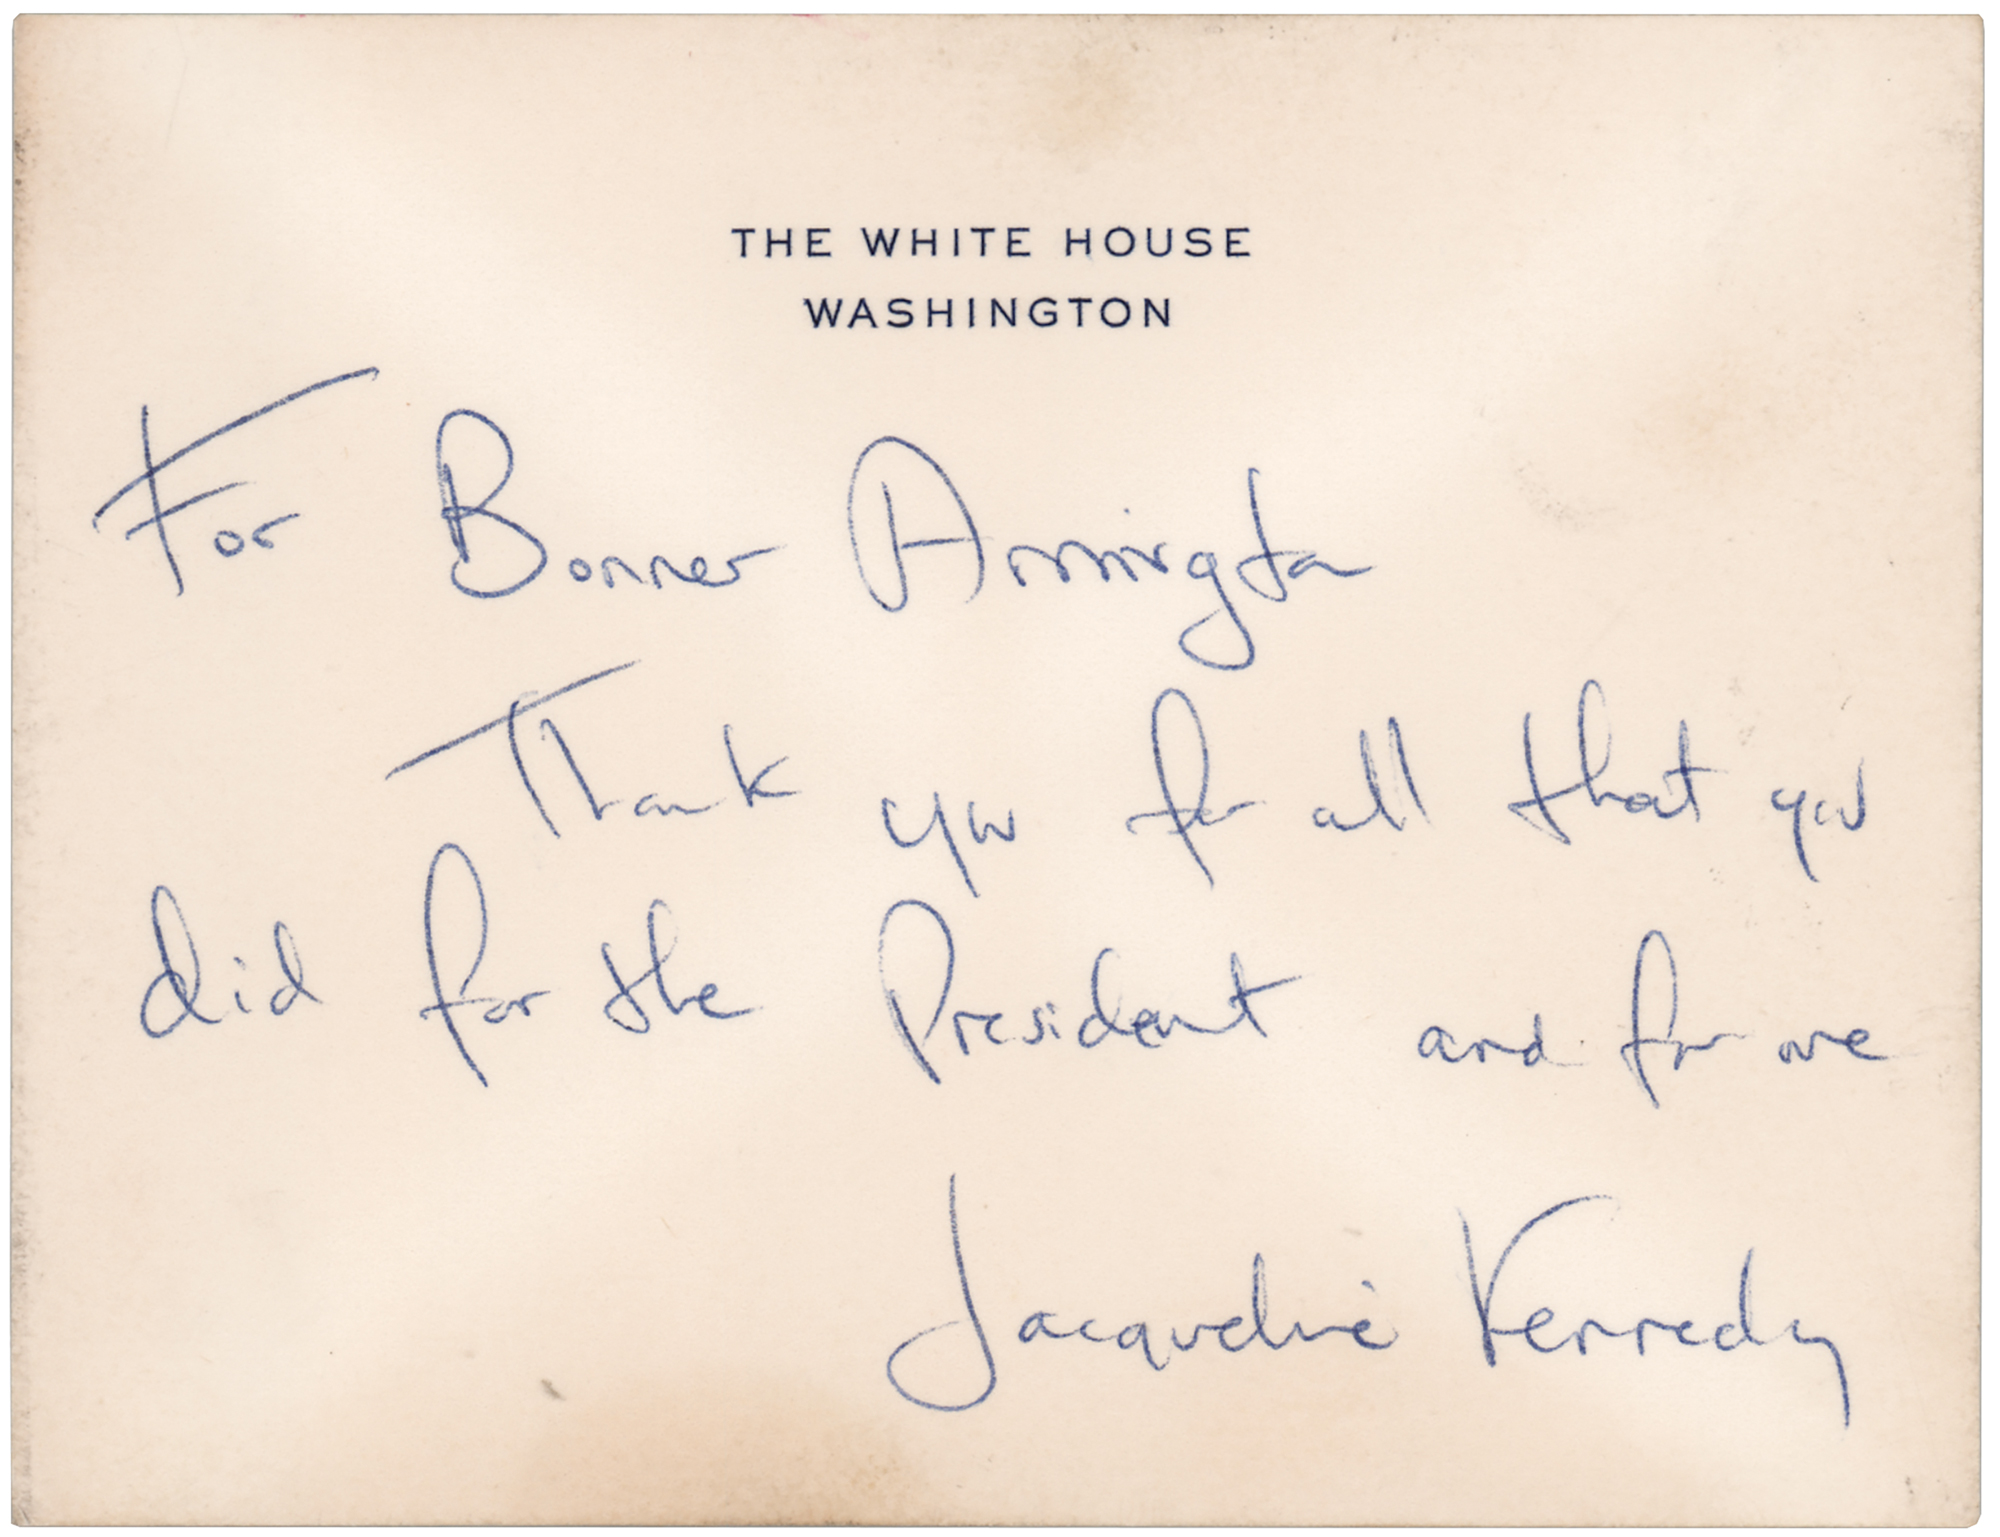 THE WHITE HOUSE
WASHINGTON
For Bonner Arrington
Thank you for all that you
did for the President and for me
Jacqueline Kennedy